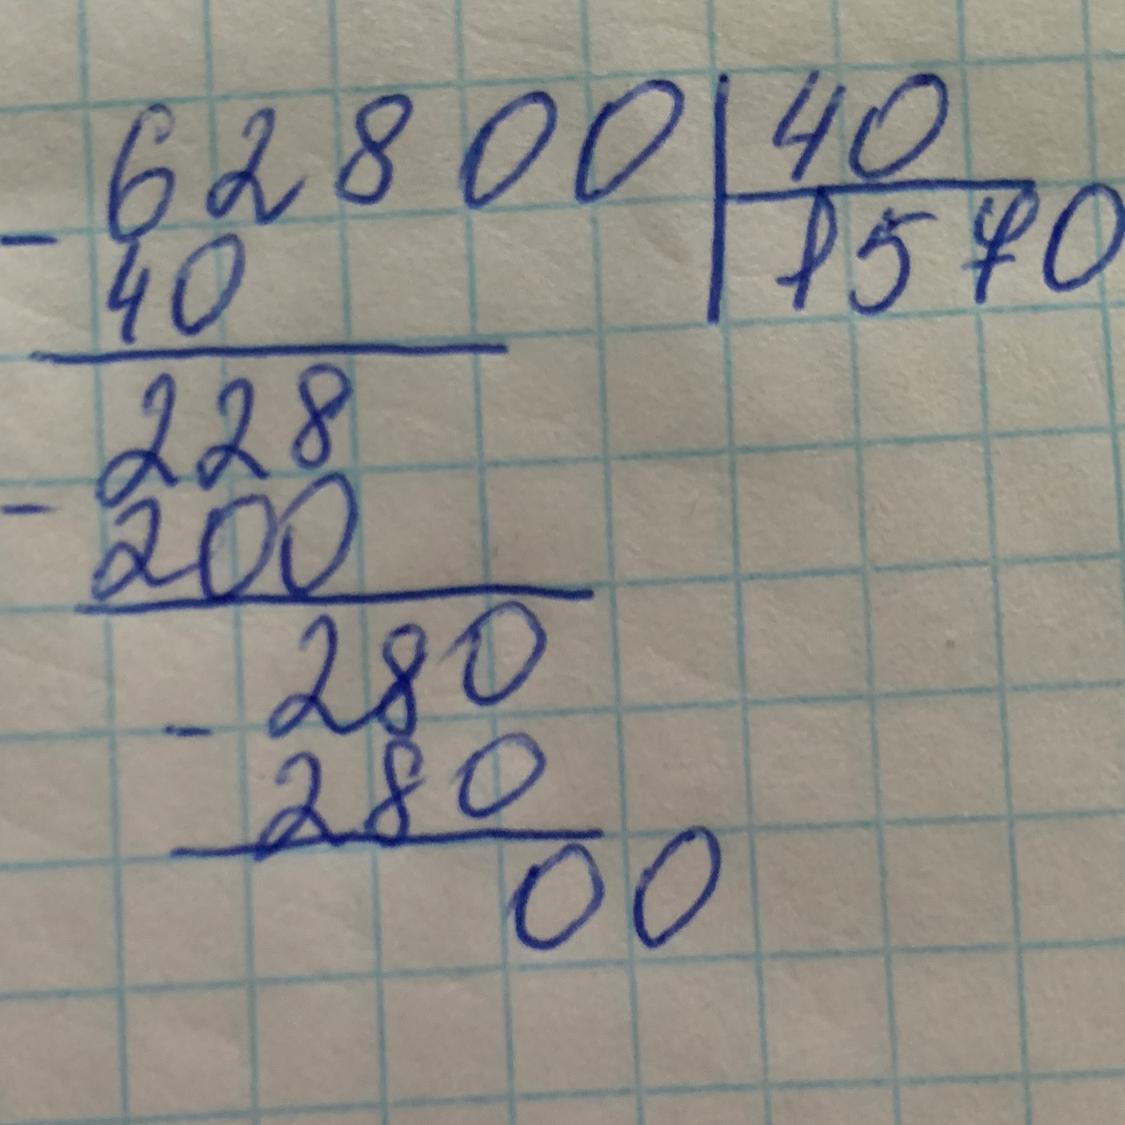 62800 | 40
- 40 1570
228
- 200
280
- 280
00